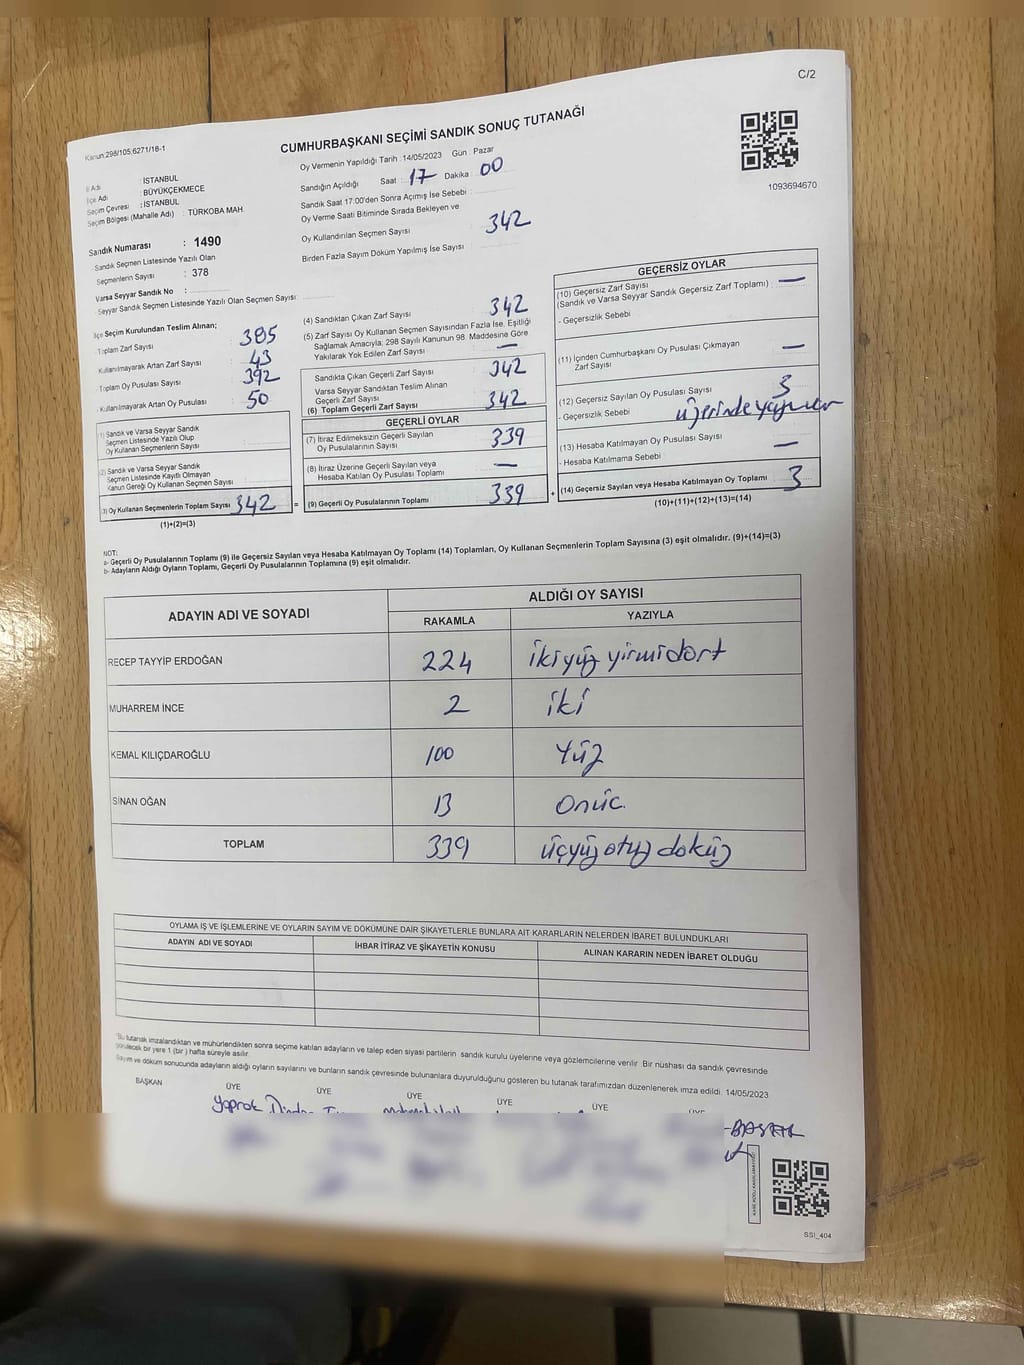 C/2
Kanun:298/105,6271/18-1
CUMHURBAŞKANI SEÇİMİ SANDIK SONUÇ TUTANAĞI
1093694670
İl Adı : İSTANBUL
İlçe Adı : BÜYÜKÇEKMECE
Seçim Çevresi : İSTANBUL
Seçim Bölgesi (Mahalle Adı) : TÜRKOBA MAH.
Sandık Numarası : 1490
- Sandık Seçmen Listesinde Yazılı Olan
Seçmenlerin Sayısı : 378
Varsa Seyyar Sandık No :
- Seyyar Sandık Seçmen Listesinde Yazılı Olan Seçmen Sayısı:
Oy Vermenin Yapıldığı Tarih :14/05/2023 Gün : Pazar
Sandığın Açıldığı Saat : 17 Dakika : 00
Sandık Saat 17:00'den Sonra Açılmış İse Sebebi :
Oy Verme Saati Bitiminde Sırada Bekleyen ve
Oy Kullandırılan Seçmen Sayısı 342
Birden Fazla Sayım Döküm Yapılmış İse Sayısı
İlçe Seçim Kurulundan Teslim Alınan;
Toplam Zarf Sayısı : 385
Kullanılmayarak Artan Zarf Sayısı : 43
Toplam Oy Pusulası Sayısı : 392
Kullanılmayarak Artan Oy Pusulası : 50
(1) Sandık ve Varsa Seyyar Sandık
Seçmen Listesinde Yazılı Olup
Oy Kullanan Seçmenlerin Sayısı :
(2) Sandık ve Varsa Seyyar Sandık
Seçmen Listesinde Kayıtlı Olmayan
Kanun Gereği Oy Kullanan Seçmen Sayısı :
(3) Oy Kullanan Seçmenlerin Toplam Sayısı 342 =
(1)+(2)=(3)
(4) Sandıktan Çıkan Zarf Sayısı 342
(5) Zarf Sayısı Oy Kullanan Seçmen Sayısından Fazla İse, Eşitliği
Sağlamak Amacıyla, 298 Sayılı Kanunun 98. Maddesine Göre
Yakılarak Yok Edilen Zarf Sayısı : —
Sandıkta Çıkan Geçerli Zarf Sayısı : 342
Varsa Seyyar Sandıktan Teslim Alınan
Geçerli Zarf Sayısı :
(6) Toplam Geçerli Zarf Sayısı : 342
GEÇERLİ OYLAR
(7) İtiraz Edilmeksizin Geçerli Sayılan
Oy Pusulalarının Sayısı : 339
(8) İtiraz Üzerine Geçerli Sayılan veya
Hesaba Katılan Oy Pusulası Toplamı : —
(9) Geçerli Oy Pusulalarının Toplamı : 339 +
GEÇERSİZ OYLAR
(10) Geçersiz Zarf Sayısı
(Sandık ve Varsa Seyyar Sandık Geçersiz Zarf Toplamı) : —
- Geçersizlik Sebebi
(11) İçinden Cumhurbaşkanı Oy Pusulası Çıkmayan
Zarf Sayısı : —
(12) Geçersiz Sayılan Oy Pusulası Sayısı : 3
- Geçersizlik Sebebi : üzerinde
(13) Hesaba Katılmayan Oy Pusulası Sayısı : —
- Hesaba Katılmama Sebebi :
(14) Geçersiz Sayılan veya Hesaba Katılmayan Oy Toplamı : 3
(10)+(11)+(12)+(13)=(14)
NOT:
a- Geçerli Oy Pusulalarının Toplamı (9) ile Geçersiz Sayılan veya Hesaba Katılmayan Oy Toplamı (14) Toplamları, Oy Kullanan Seçmenlerin Toplam Sayısına (3) eşit olmalıdır. (9)+(14)=(3)
b- Adayların Aldığı Oyların Toplamı, Geçerli Oy Pusulalarının Toplamına (9) eşit olmalıdır.
ADAYIN ADI VE SOYADI ALDIĞI OY SAYISI
RAKAMLA YAZIYLA
RECEP TAYYİP ERDOĞAN 224 ikiyüz yirmidört
MUHARREM İNCE 2 iki
KEMAL KILIÇDAROĞLU 100 Yüz
SİNAN OĞAN 13 onüc.
TOPLAM 339 üçyüz otuz doküz
OYLAMA İŞ VE İŞLEMLERİNE VE OYLARIN SAYIM VE DÖKÜMÜNE DAİR ŞİKAYETLERLE BUNLARA AİT KARARLARIN NELERDEN İBARET BULUNDUKLARI
ADAYIN ADI VE SOYADI İHBAR İTİRAZ VE ŞİKAYETİN KONUSU ALINAN KARARIN NEDEN İBARET OLDUĞU
*Bu tutanak imzalandıktan ve mühürlendikten sonra seçime katılan adayların ve talep eden siyasi partilerin sandık kurulu üyelerine veya gözlemcilerine verilir. Bir nüshası da sandık çevresinde
görülecek bir yere 1 (bir ) hafta süreyle asılır.
Sayım ve döküm sonucunda adayların aldığı oyların sayılarını ve bunların sandık çevresinde bulunanlara duyurulduğunu gösteren bu tutanak tarafımızdan düzenlenerek imza edildi. 14/05/2023
BAŞKAN ÜYE ÜYE ÜYE ÜYE ÜYE ÜYE
Yaprak
SSI_404